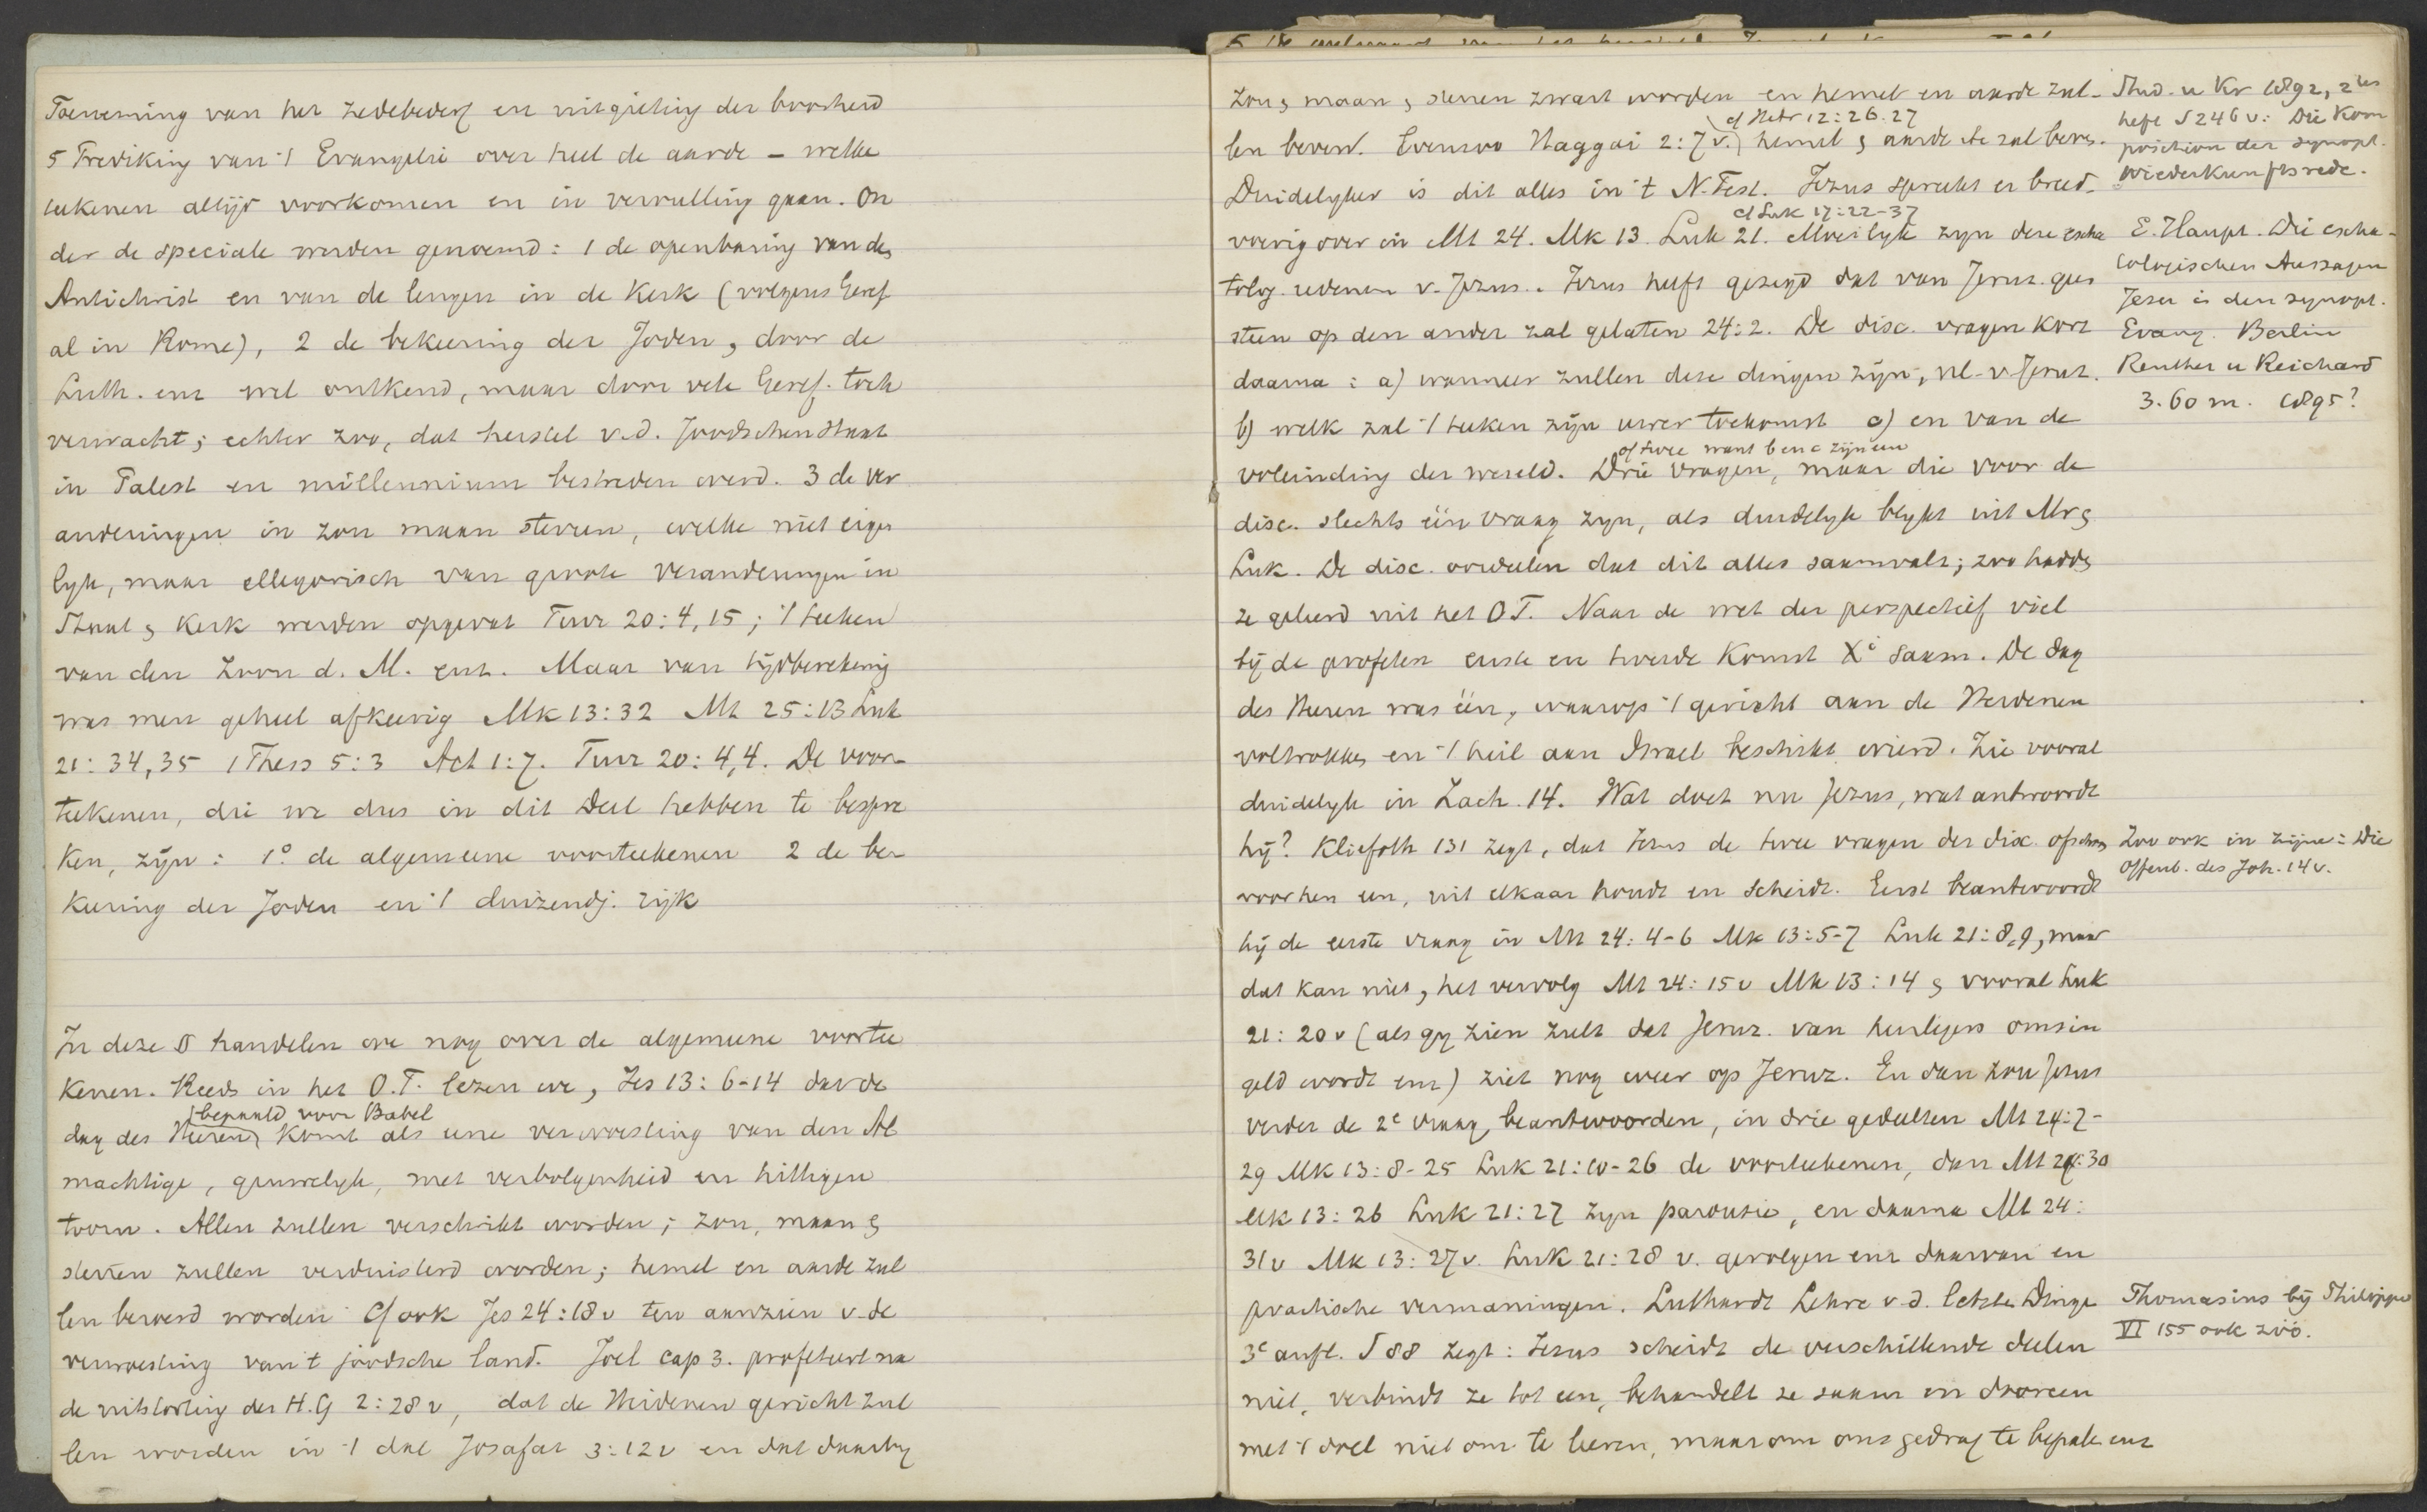 Toeneming van het zedebederf en uitgieting der boosheid
5 Prediking van 't Evangelie over heel de aarde – welke
teekenen altijd voorkomen en in vervulling gaan. On
der de speciale werden genoemd: 1 de openbaring van den
Antichrist en van de leugen in de Kerk (volgens Geref
al in Rome), 2 de bekeering der Joden, door de
Luth. enz wel ontkend, maar door vele Geref. toch
verwacht; echter zoo, dat herstel v.d. Joodschen staat
in Palest en millennium bestreden werd. 3 de ver
anderingen in zon maan sterren, welke niet eigen
lyk, maar allegorisch van groote veranderingen in
Staat & Kerk werden opgevat Turr 20:4,15; 't teeken
van den Zoon d. M. enz. Maar van tijdberekening
was men geheel afkeerig Mk 13:32 Mt 25:13 Luk
21:34,35 1 Thess 5:3 Act 1:7. Turr 20:4,4. De voor-
teekenen, die we dus in dit Deel hebben te bespre
ken, zijn: 1° de algemeene voorteekenen 2 de be-
keering der Joden en 't duizendj. rijk
In deze § handelen we nog over de algemeene voortee
kenen. Reeds in het O.T. lezen we, Jes 13:6-14 dat de
bepaald voor Babel
dag des Heeren komt als eene verwoesting van den Al
machtige, gruwelyk, met verbolgenheid en hittigen
toorn. Allen zullen verschrikt worden; zon, maan &
sterren zullen verduisterd worden; hemel en aarde zul
len beroerd worden Cf ook Jes 24:18v ten aanzien v-de
verwoesting van 't joodsche land. Joel cap 3. profeteert na
de uitstorting des H.G 2:28v, dat de Heidenen gericht zul
len worden in 't dal Josafat 3:12v en dat daarby
zon, maan, sterren zwart worden en hemel en aarde zul-
cf Hebr 12:26.27
len beven. Evenzoo Haggai 2:7v. hemel & aarde etc zal beven.
Duidelyker is dit alles in 't N.Test. Jezus spreekt er breed-
cf Luk 17:22-37
voerig over in Mt 24. Mk 13. Luk 21. Moeilyk zyn deze escha
tolog. redenen v. Jezus. Jezus heeft gezegd dat van Jeruz. geen
steen op den ander zal gelaten 24:2. De disc. vragen kort
daarna: a) wanneer zullen deze dingen zijn, nl-v-Jeruz.
b) welk zal 't teeken zijn uwer toekomst c) en van de
of twee want b en c zijn een
voleinding der wereld. Drie vragen, maar die voor de
disc. slechts één vraag zyn, als duidelyk blykt uit Mr &
Luk. De disc. oordeelen dat dit alles saamvalt; zoo hadden
ze geleerd uit het O.T. Naar de wet der perspectief viel
bij de profeten eerste en tweede komst Xi saam. De dag
des Heeren was één, waarop 't gericht aan de Heidenen
voltrokken en 't heil aan Israel beschikt wierd. Zie vooral
duidelyk in Zach. 14. Wat doet nu Jezus, wat antwoordt
hij? Kliefoth 131 zegt, dat Jezus de twee vragen der disc. ofschoon
voor hen een, uit elkaar houdt en scheidt. Eerst beantwoordt
hij de eerste vraag in Mt 24:4-6 Mk 13:5-7 Luk 21:8,9, maar
dat kan niet, het vervolg Mt 24:15v Mk 13:14 & vooral Luk
21:20v (als gy zien zult dat Jeruz. van heirlegers omsin
geld wordt enz) ziet nog weer op Jeruz. En dan zou Jezus
verder de 2e vraag, beantwoorden, in drie gedeelten Mt 24:7-
29 Mk 13:8-25 Luk 21:10-26 de voorteekenen, dan Mt 24:30
Mk 13:26 Luk 21:27 zyn parousie, en daarna Mt 24:
31v Mk 13:27v. Luk 21:28 v. gevolgen enz daarvan en
practische vermaningen. Luthardt Lehre v.d. letzten Dingen
3e aufl. S 88 zegt: Jezus scheidt de verschillende deelen
niet, verbindt ze tot een, behandelt ze saam en dooreen
met 't doel niet om te leeren, maar om ons gedrag te bepalen enz
Stud. u Kr 1892, 2tes
heft S 246 v: Die Kom
position der synopt.
Wiederkunftsrede.
E. Haupt. Die escha-
tologischen Aussagen
Jesu in den synopt.
Evang. Berlin
Reuther u Reichard
3.60 m. 1895?
Zoo ook in zijne: Die
Offenb. des Joh. 14v.
Thomasius bij Philippi
VI 155 ook zóó.